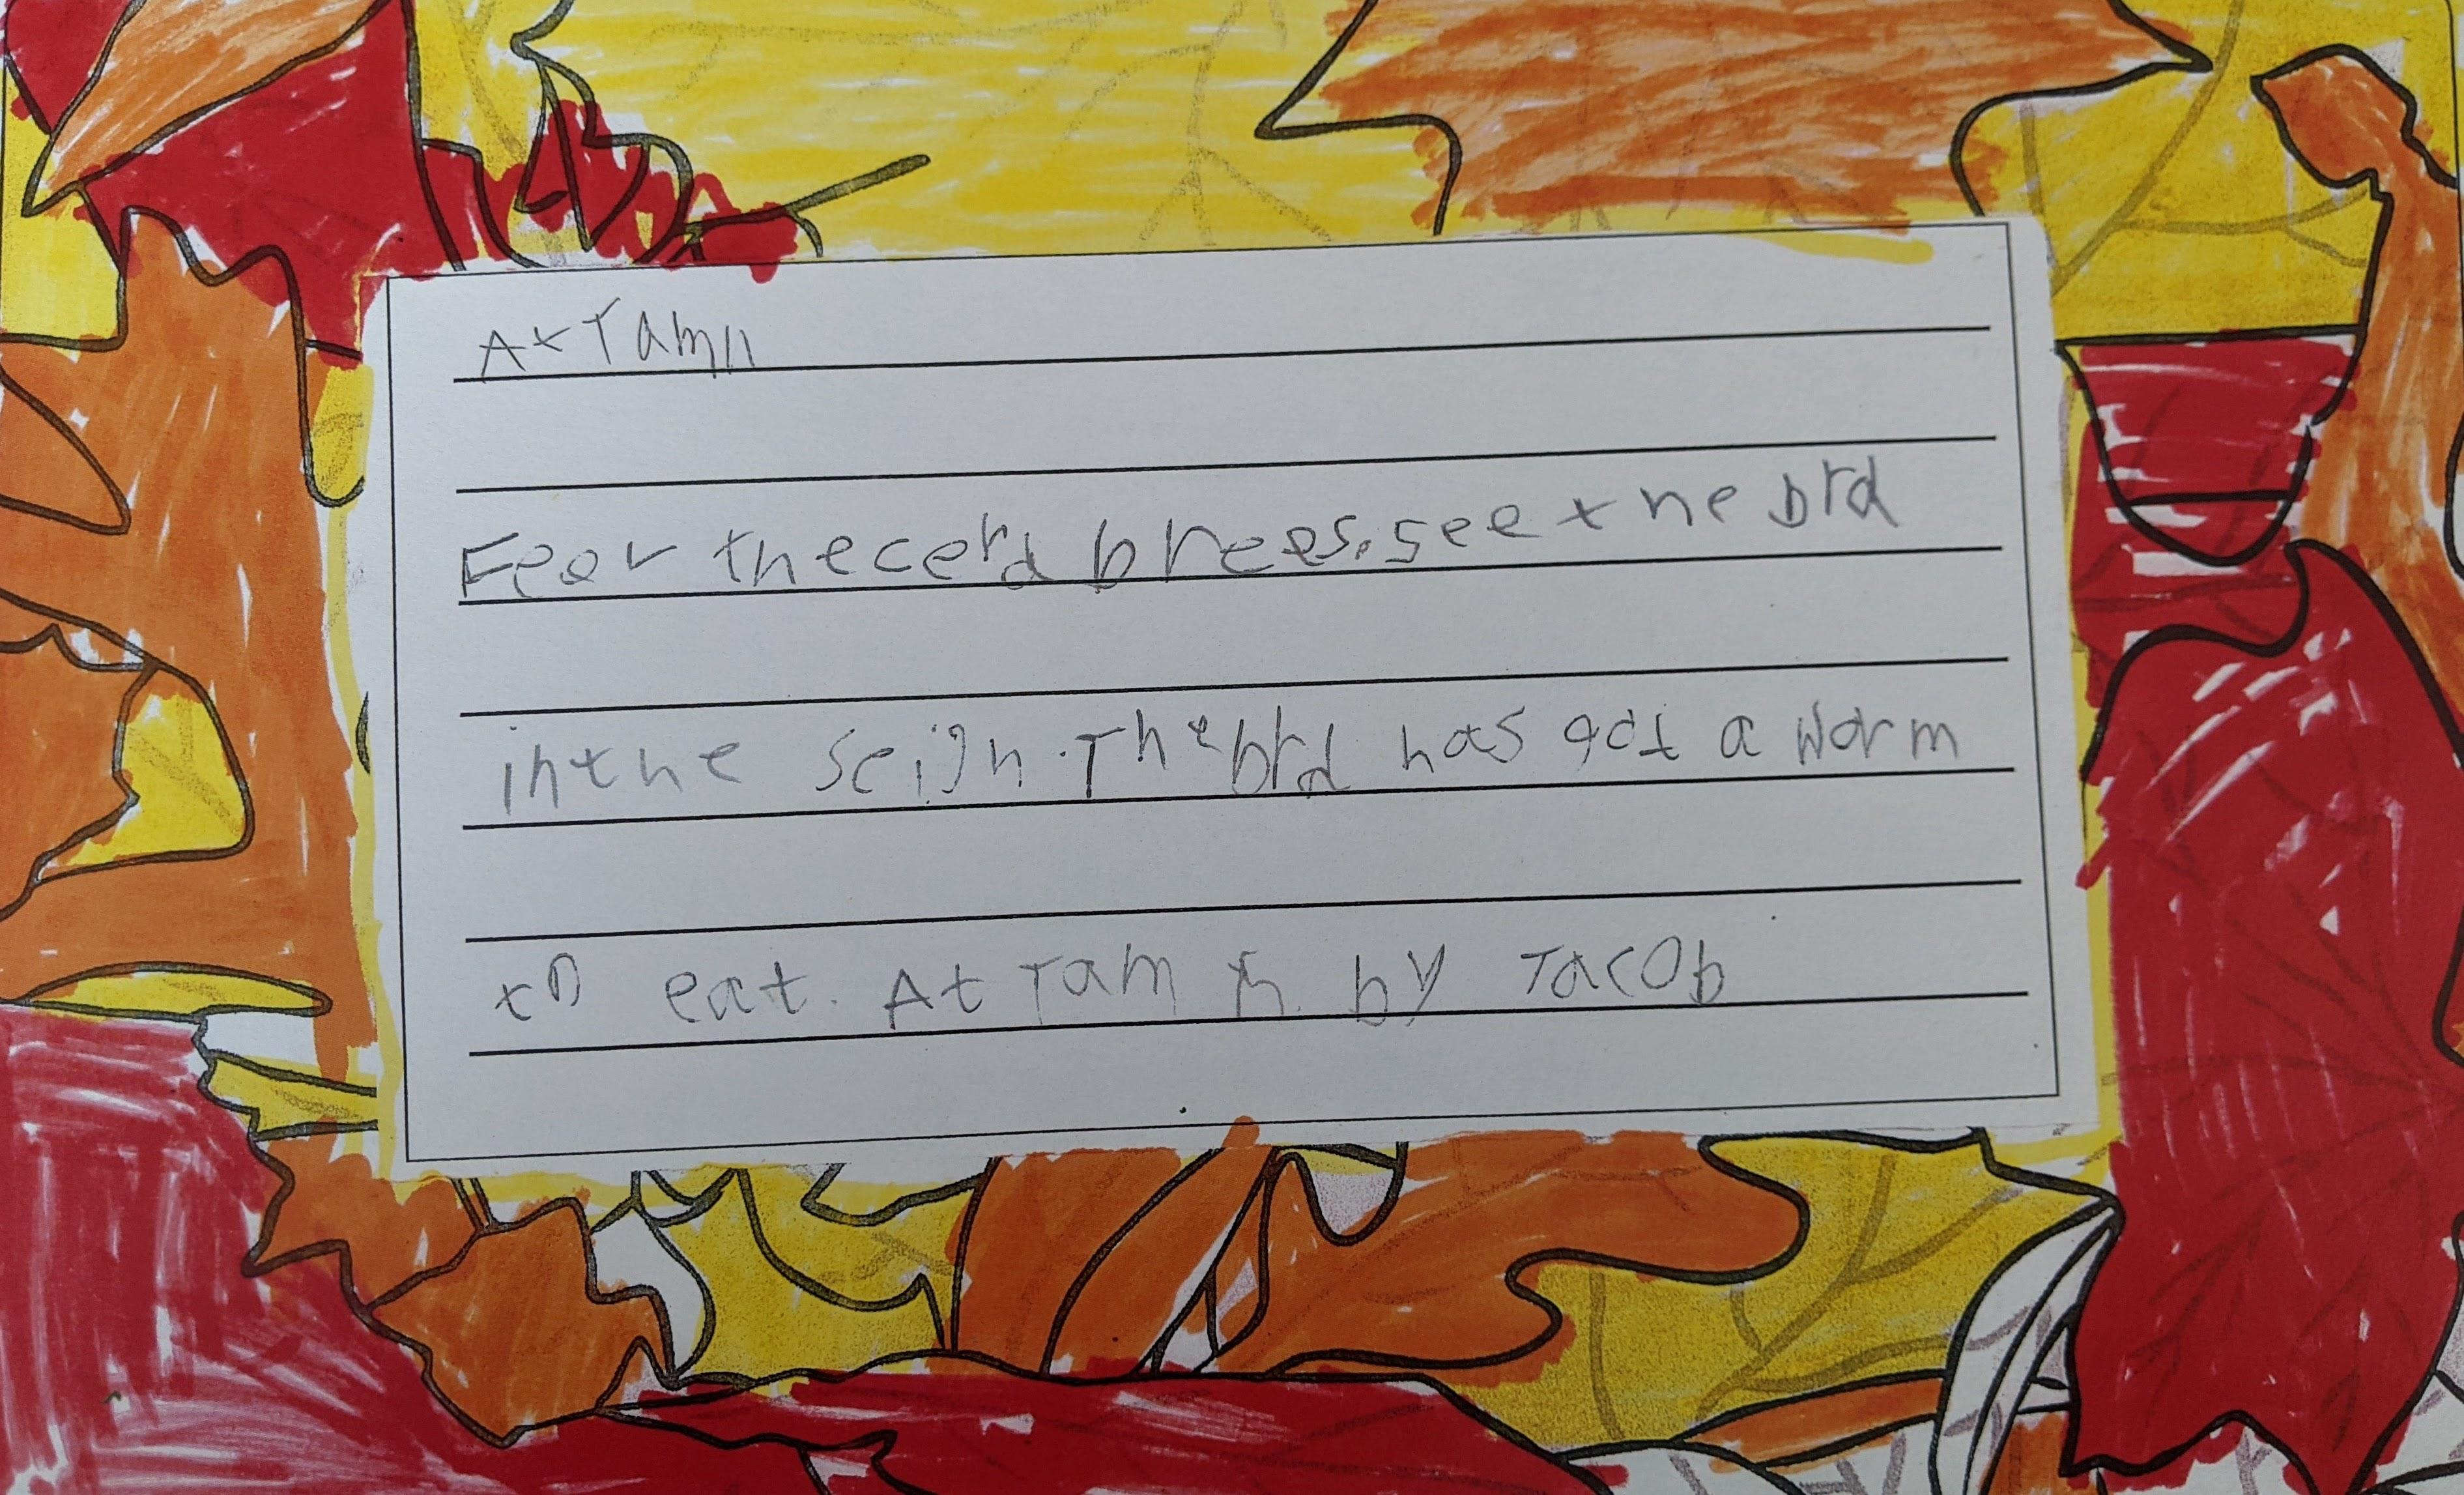 At Tamn
Feer the cerd brees. see the brd
in the seign. The brd has got a worm
to eat. At Tam n by Jacob